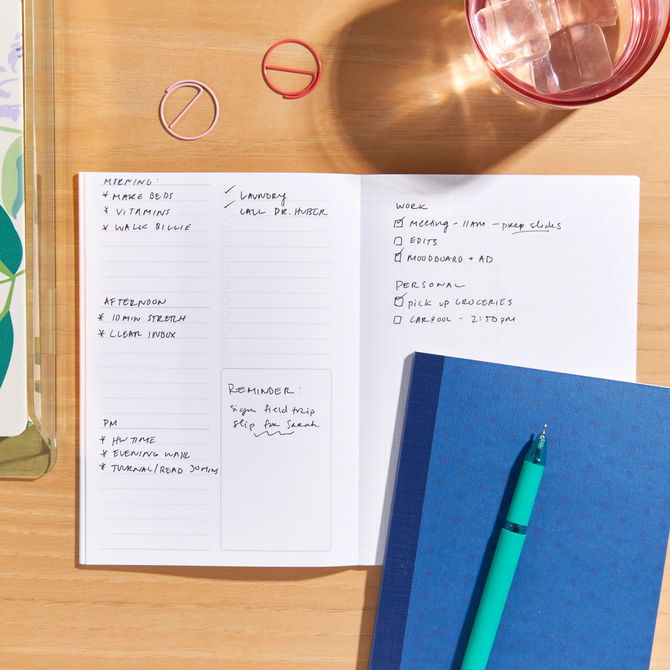 MORNING:
* MAKE BEDS
* VITAMINS
* WALK BILLIE
AFTERNOON
* 10 MIN STRETCH
* CLEAR INBOX
PM
* HW TIME
* EVENING WALK
* JOURNAL/READ 30 MINS
✓ LAUNDRY
✓ CALL DR. HUBER
REMINDER:
Sign field trip
slip for Sarah
WORK
☑ MEETING - 11AM - prep slides
☐ EDITS
☑ MOODBOARD + AD
PERSONAL
☑ PICK UP GROCERIES
☐ CARPOOL - 2:50 pm